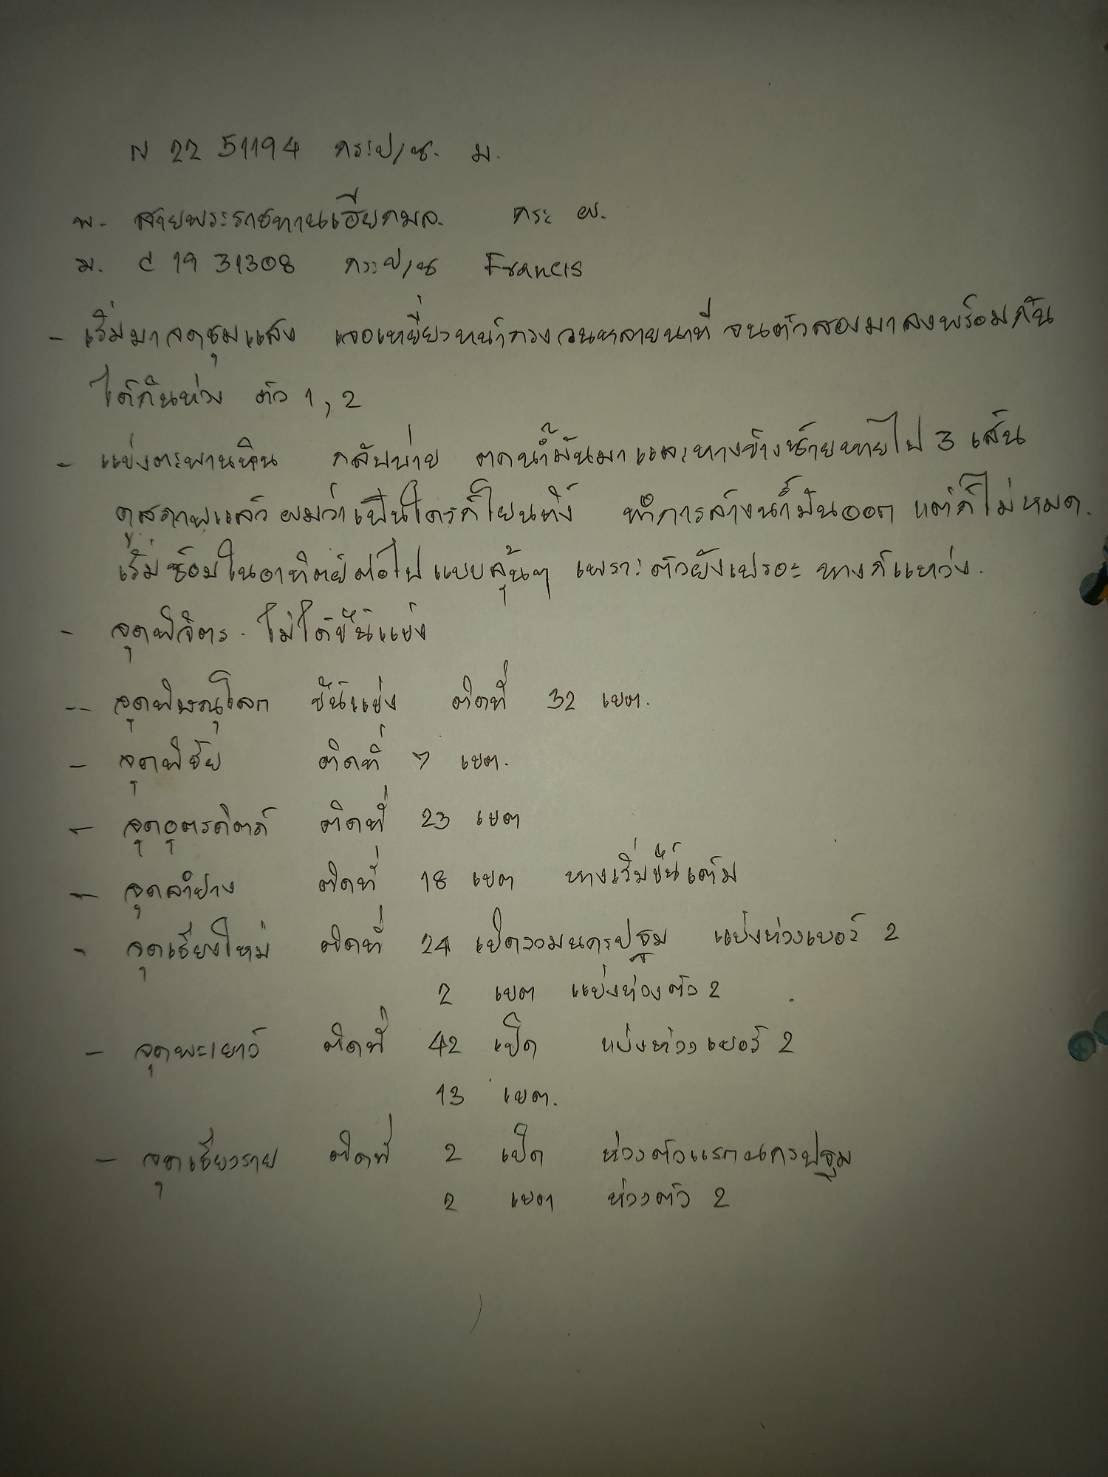 N 22 51194 กระป/น. ม.
พ. สายพระราชทานเฮียกมล. กระ ผ.
ม. C 19 31308 กระป/น Francis
- เริ่มมาจุดชุมแสง เจอเหยี่ยวหน้ากรงวนหลายนาที่ จนตัวสองมาลงพร้อมกัน
ได้กินห่วง ตัว 1, 2
- แข่งตะพานหิน กลับบ่าย ตกน้ำมันมาและหางข้างซ้ายหายไป 3 เส้น
ดูสภาพแล้ว ผมว่าเป็นใครก็โยนทิ้ง ทำการล้างน้ำมันออก แต่ก็ไม่หมด.
เริ่มซ้อมในอาทิตย์ต่อไปแบบลุ้นๆ เพราะตัวยังเปรอะ หางก็แหว่ง.
- จุดพิจิตร. ไม่ได้ขึ้นแข่ง
-- จุดพิษณุโลก ขึ้นแข่ง ติดที่ 32 เขต.
- จุดพิชัย ติดที่ 7 เขต.
- จุดอุตรดิตถ์ ติดที่ 23 เขต
- จุดลำปาง ติดที่ 18 เขต หางเริ่มขึ้นเต็ม
- จุดเชียงใหม่ ติดที่ 24 เปิดรวมนครปฐม แข่งห่วงเบอร์ 2
2 เขต แข่งห่วงตัว 2
- จุดพะเยาว์ ติดที่ 42 เปิด แข่งห่วงเบอร์ 2
13 เขต.
- จุดเชียงราย ติดที่ 2 เปิด ห่วงตัวแรกนครปฐม
2 เขต ห่วงตัว 2